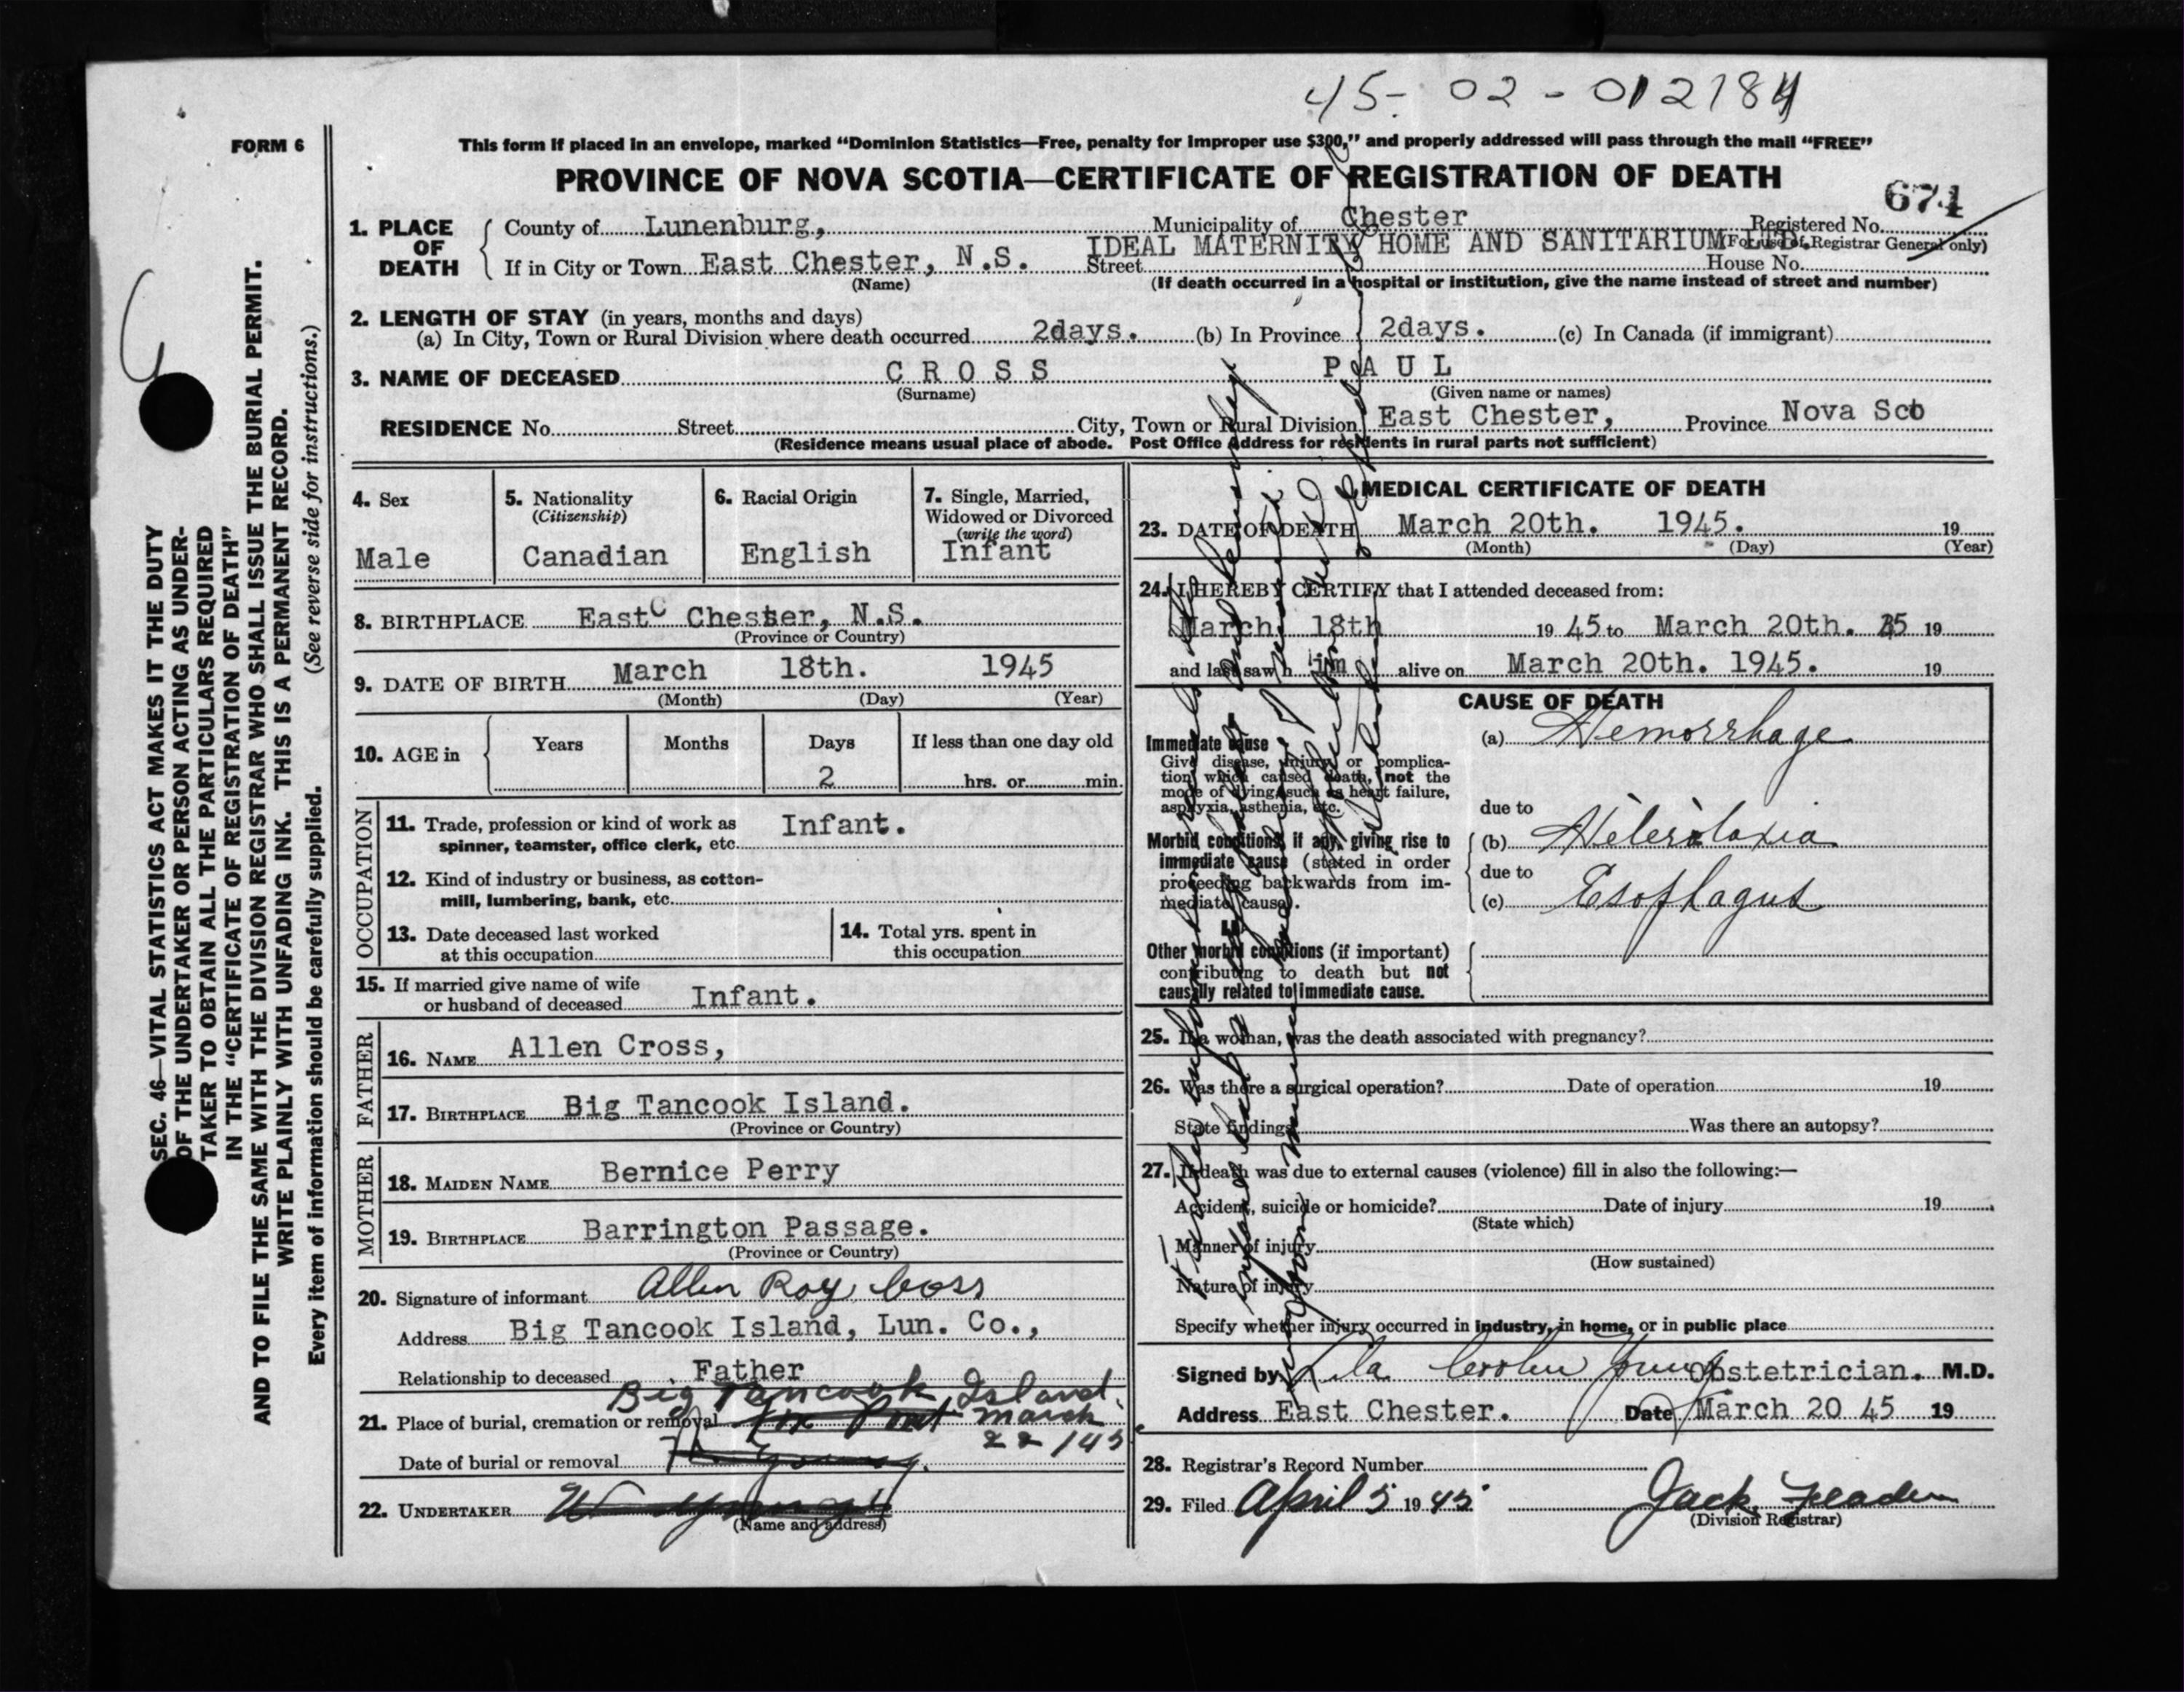 45-02-012784
FORM 6
This form if placed in an envelope, marked "Dominion Statistics—Free, penalty for improper use $300," and properly addressed will pass through the mail "FREE"
PROVINCE OF NOVA SCOTIA—CERTIFICATE OF REGISTRATION OF DEATH
674
1. PLACE OF DEATH
County of Lunenburg, Municipality of Chester Registered No.
IDEAL MATERNITY HOME AND SANITARIUM LTD. (For use of Registrar General only)
If in City or Town East Chester, N.S. Street House No.
(Name) (If death occurred in a hospital or institution, give the name instead of street and number)
2. LENGTH OF STAY (in years, months and days)
(a) In City, Town or Rural Division where death occurred 2days. (b) In Province 2days. (c) In Canada (if immigrant)
3. NAME OF DECEASED CROSS PAUL
(Surname) (Given name or names)
RESIDENCE No. Street City, Town or Rural Division East Chester, Province Nova Sco
(Residence means usual place of abode. Post Office Address for residents in rural parts not sufficient)
4. Sex
Male
5. Nationality
(Citizenship)
Canadian
6. Racial Origin
English
7. Single, Married,
Widowed or Divorced
(write the word)
Infant
8. BIRTHPLACE East C Chester, N.S.
(Province or Country)
9. DATE OF BIRTH March 18th. 1945
(Month) (Day) (Year)
10. AGE in Years Months Days If less than one day old
2 hrs. or min.
OCCUPATION
11. Trade, profession or kind of work as Infant.
spinner, teamster, office clerk, etc.
12. Kind of industry or business, as cotton-
mill, lumbering, bank, etc.
13. Date deceased last worked
at this occupation
14. Total yrs. spent in
this occupation
15. If married give name of wife
or husband of deceased Infant.
FATHER
16. NAME Allen Cross,
17. BIRTHPLACE Big Tancook Island.
(Province or Country)
MOTHER
18. MAIDEN NAME Bernice Perry
19. BIRTHPLACE Barrington Passage.
(Province or Country)
20. Signature of informant Allen Roy Cross
Address Big Tancook Island, Lun. Co.,
Relationship to deceased Father
Big Tancook Island
21. Place of burial, cremation or removal Fox Point March
22/45
Date of burial or removal
22. UNDERTAKER
(Name and address)
MEDICAL CERTIFICATE OF DEATH
23. DATE OF DEATH March 20th. 1945. 19
(Month) (Day) (Year)
24. I HEREBY CERTIFY that I attended deceased from:
March 18th 19 45 to March 20th. 45 19
and last saw h im alive on March 20th. 1945. 19
CAUSE OF DEATH
I
Immediate cause
Give disease, injury or complica-
tion which caused death, not the
mode of dying, such as heart failure,
asphyxia, asthenia, etc.
(a) Hemorrhage
due to
Morbid conditions, if any, giving rise to
immediate cause (stated in order
proceeding backwards from im-
mediate cause).
(b)
due to
(c) Esophagus
II
Other morbid conditions (if important)
contributing to death but not
causally related to immediate cause.
25. If a woman, was the death associated with pregnancy?
26. Was there a surgical operation? Date of operation 19
State findings Was there an autopsy?
27. If death was due to external causes (violence) fill in also the following:—
Accident, suicide or homicide? Date of injury 19
(State which)
Manner of injury
(How sustained)
Nature of injury
Specify whether injury occurred in industry, in home, or in public place
Signed by Lila Coolen Young Obstetrician. M.D.
Address East Chester. Date March 20 45 19
28. Registrar's Record Number
29. Filed April 5 19 45 Jack
(Division Registrar)
SEC. 46—VITAL STATISTICS ACT MAKES IT THE DUTY
OF THE UNDERTAKER OR PERSON ACTING AS UNDER-
TAKER TO OBTAIN ALL THE PARTICULARS REQUIRED
IN THE "CERTIFICATE OF REGISTRATION OF DEATH"
AND TO FILE THE SAME WITH THE DIVISION REGISTRAR WHO SHALL ISSUE THE BURIAL PERMIT.
WRITE PLAINLY WITH UNFADING INK. THIS IS A PERMANENT RECORD.
Every item of information should be carefully supplied. (See reverse side for instructions.)